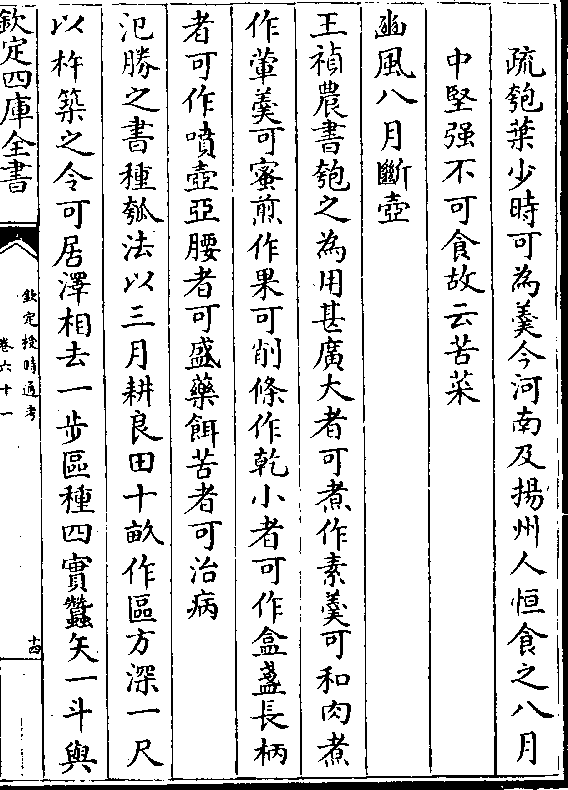 疏匏葉少時可為羮今河南及揚州人恒食之八月
中堅强不可食故云苦菜
豳風八月斷壺
王禎農書匏之為用甚廣大者可煮作素羮可和肉煮
作葷羮可蜜煎作果可削條作乾小者可作盒盞長柄
者可作噴壺亞腰者可盛藥餌苦者可治病
氾勝之書種瓠法以三月耕良田十畝作區方深一尺
以杵築之令可居澤相去一步區種四實蠶矢一斗與
欽定四庫全書
欽定授時通考
卷六十一
十四